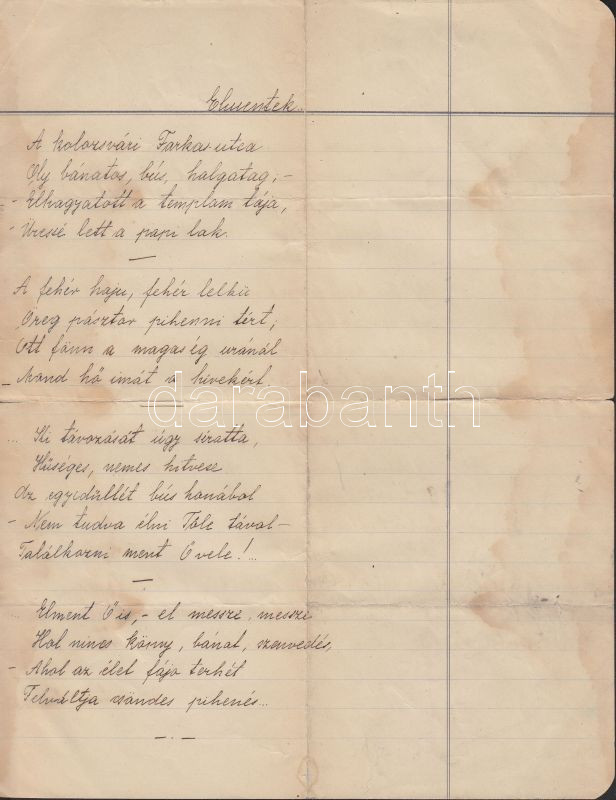 Elmentek..
A kolozsvári Farkas utca
Oly bánatos, bús, halgatag, -
- Elhagyatott a templom tája,
- Üressé lett a papi lak.
—
A fehér haju, fehér lelkü
Öreg pásztor pihenni tért,
Ott fönn a magas ég uránál
- Mond hő imát a hivekért.
darabanth
... Ki távozását úgy siratta,
Hűséges, nemes hitvese
Az egyedüllét bús honából
- Nem tudva élni Tőle távol -
Találkozni ment Ő vele!...
—
Elment Ő is, - el messze, messze
Hol nincs könny, bánat, szenvedés,
- Ahol az élet fájó terhét
Felváltja csöndes pihenés...
— . —